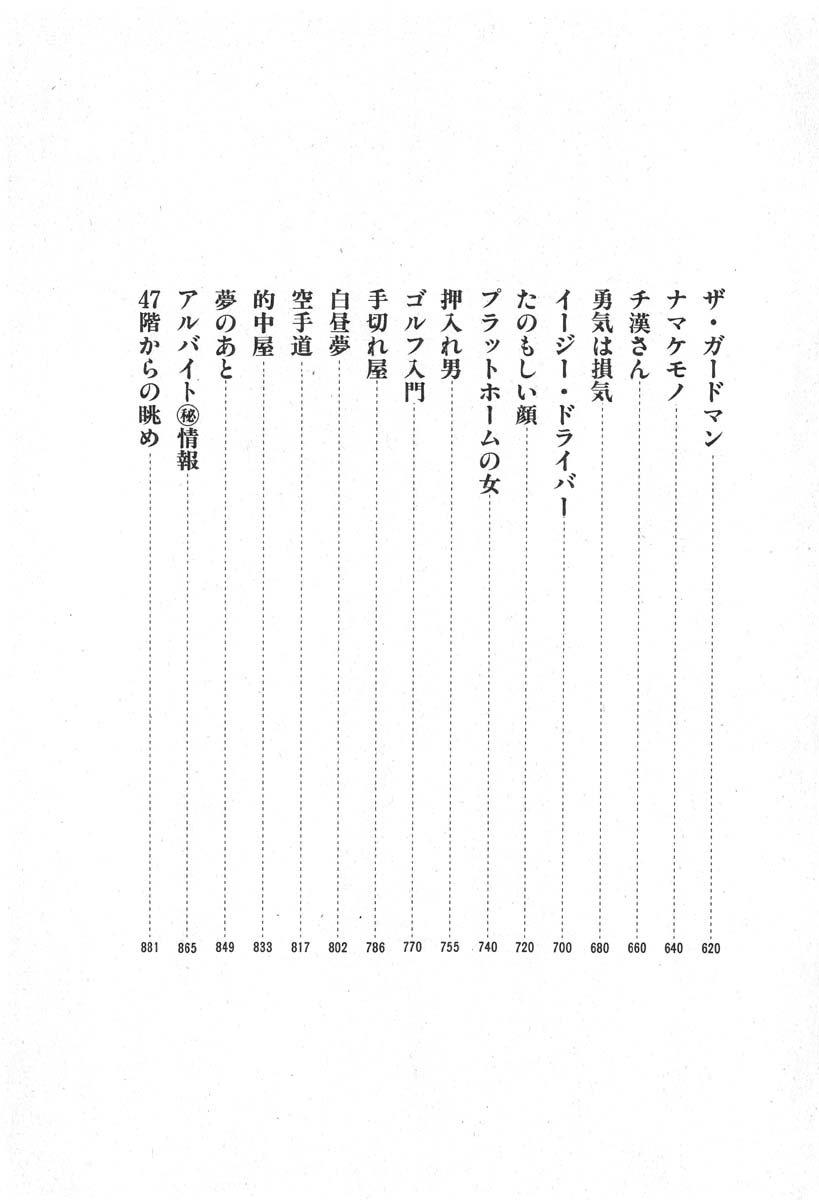 ザ・ガードマン 620
ナマケモノ 640
チ漢さん 660
勇気は損気 680
イージー・ドライバー 700
たのもしい顔 720
プラットホームの女 740
押入れ男 755
ゴルフ入門 770
手切れ屋 786
白昼夢 802
空手道 817
的中屋 833
夢のあと 849
アルバイト㊙情報 865
47階からの眺め 881